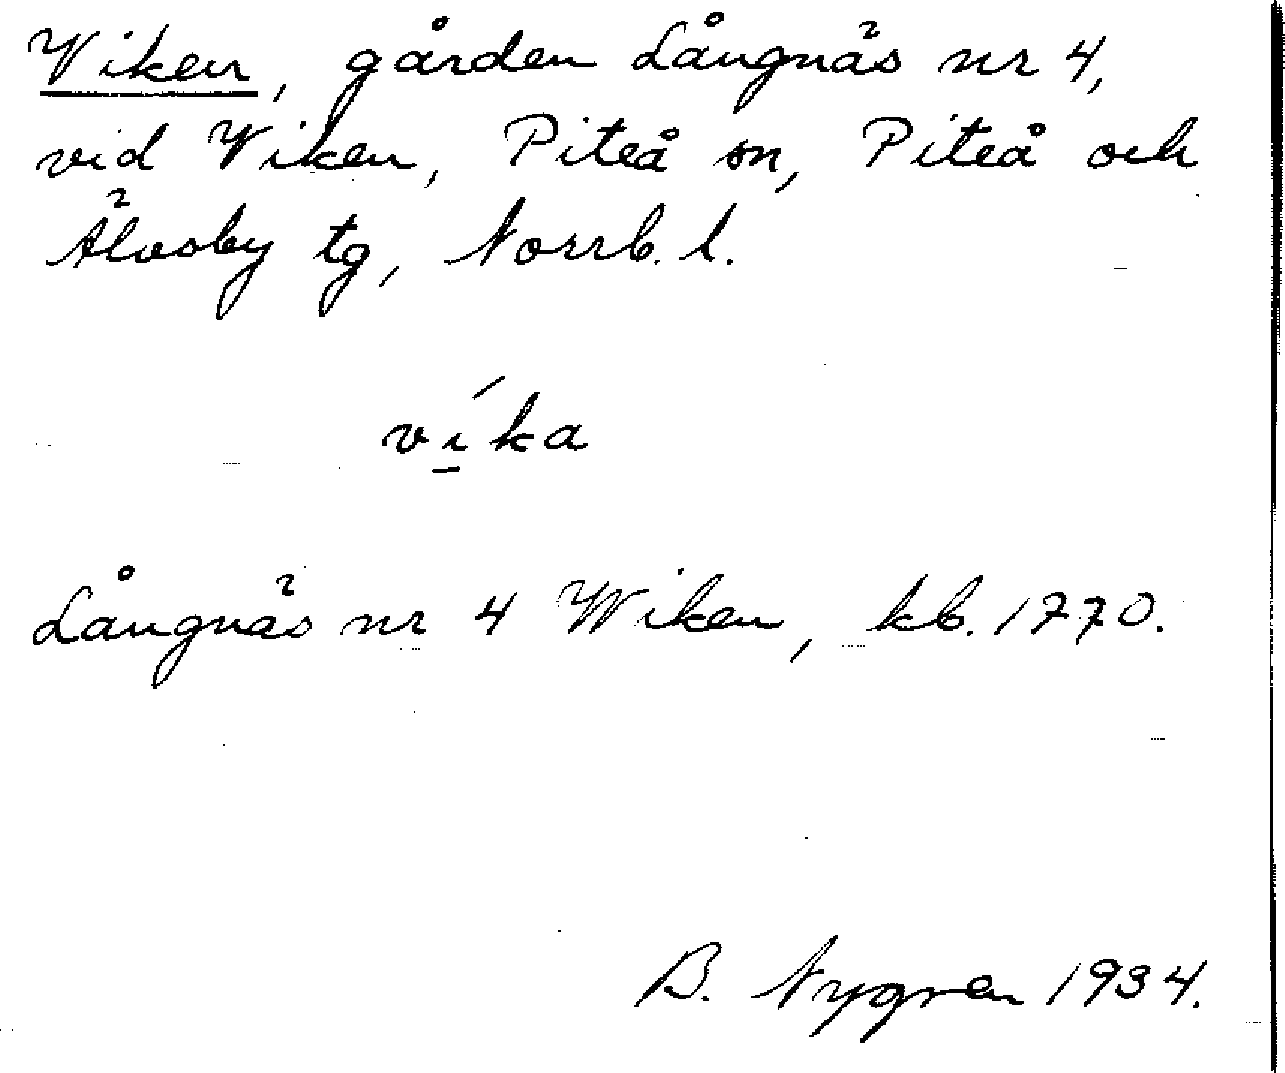 Viken, gården Långnäs nr 4,
vid Viken, Piteå sn, Piteå och
Älvsby tg, Norrb. l.
ví̱ka
Långnäs nr 4 Wiken, kb. 1770.
B. Nygren 1934.